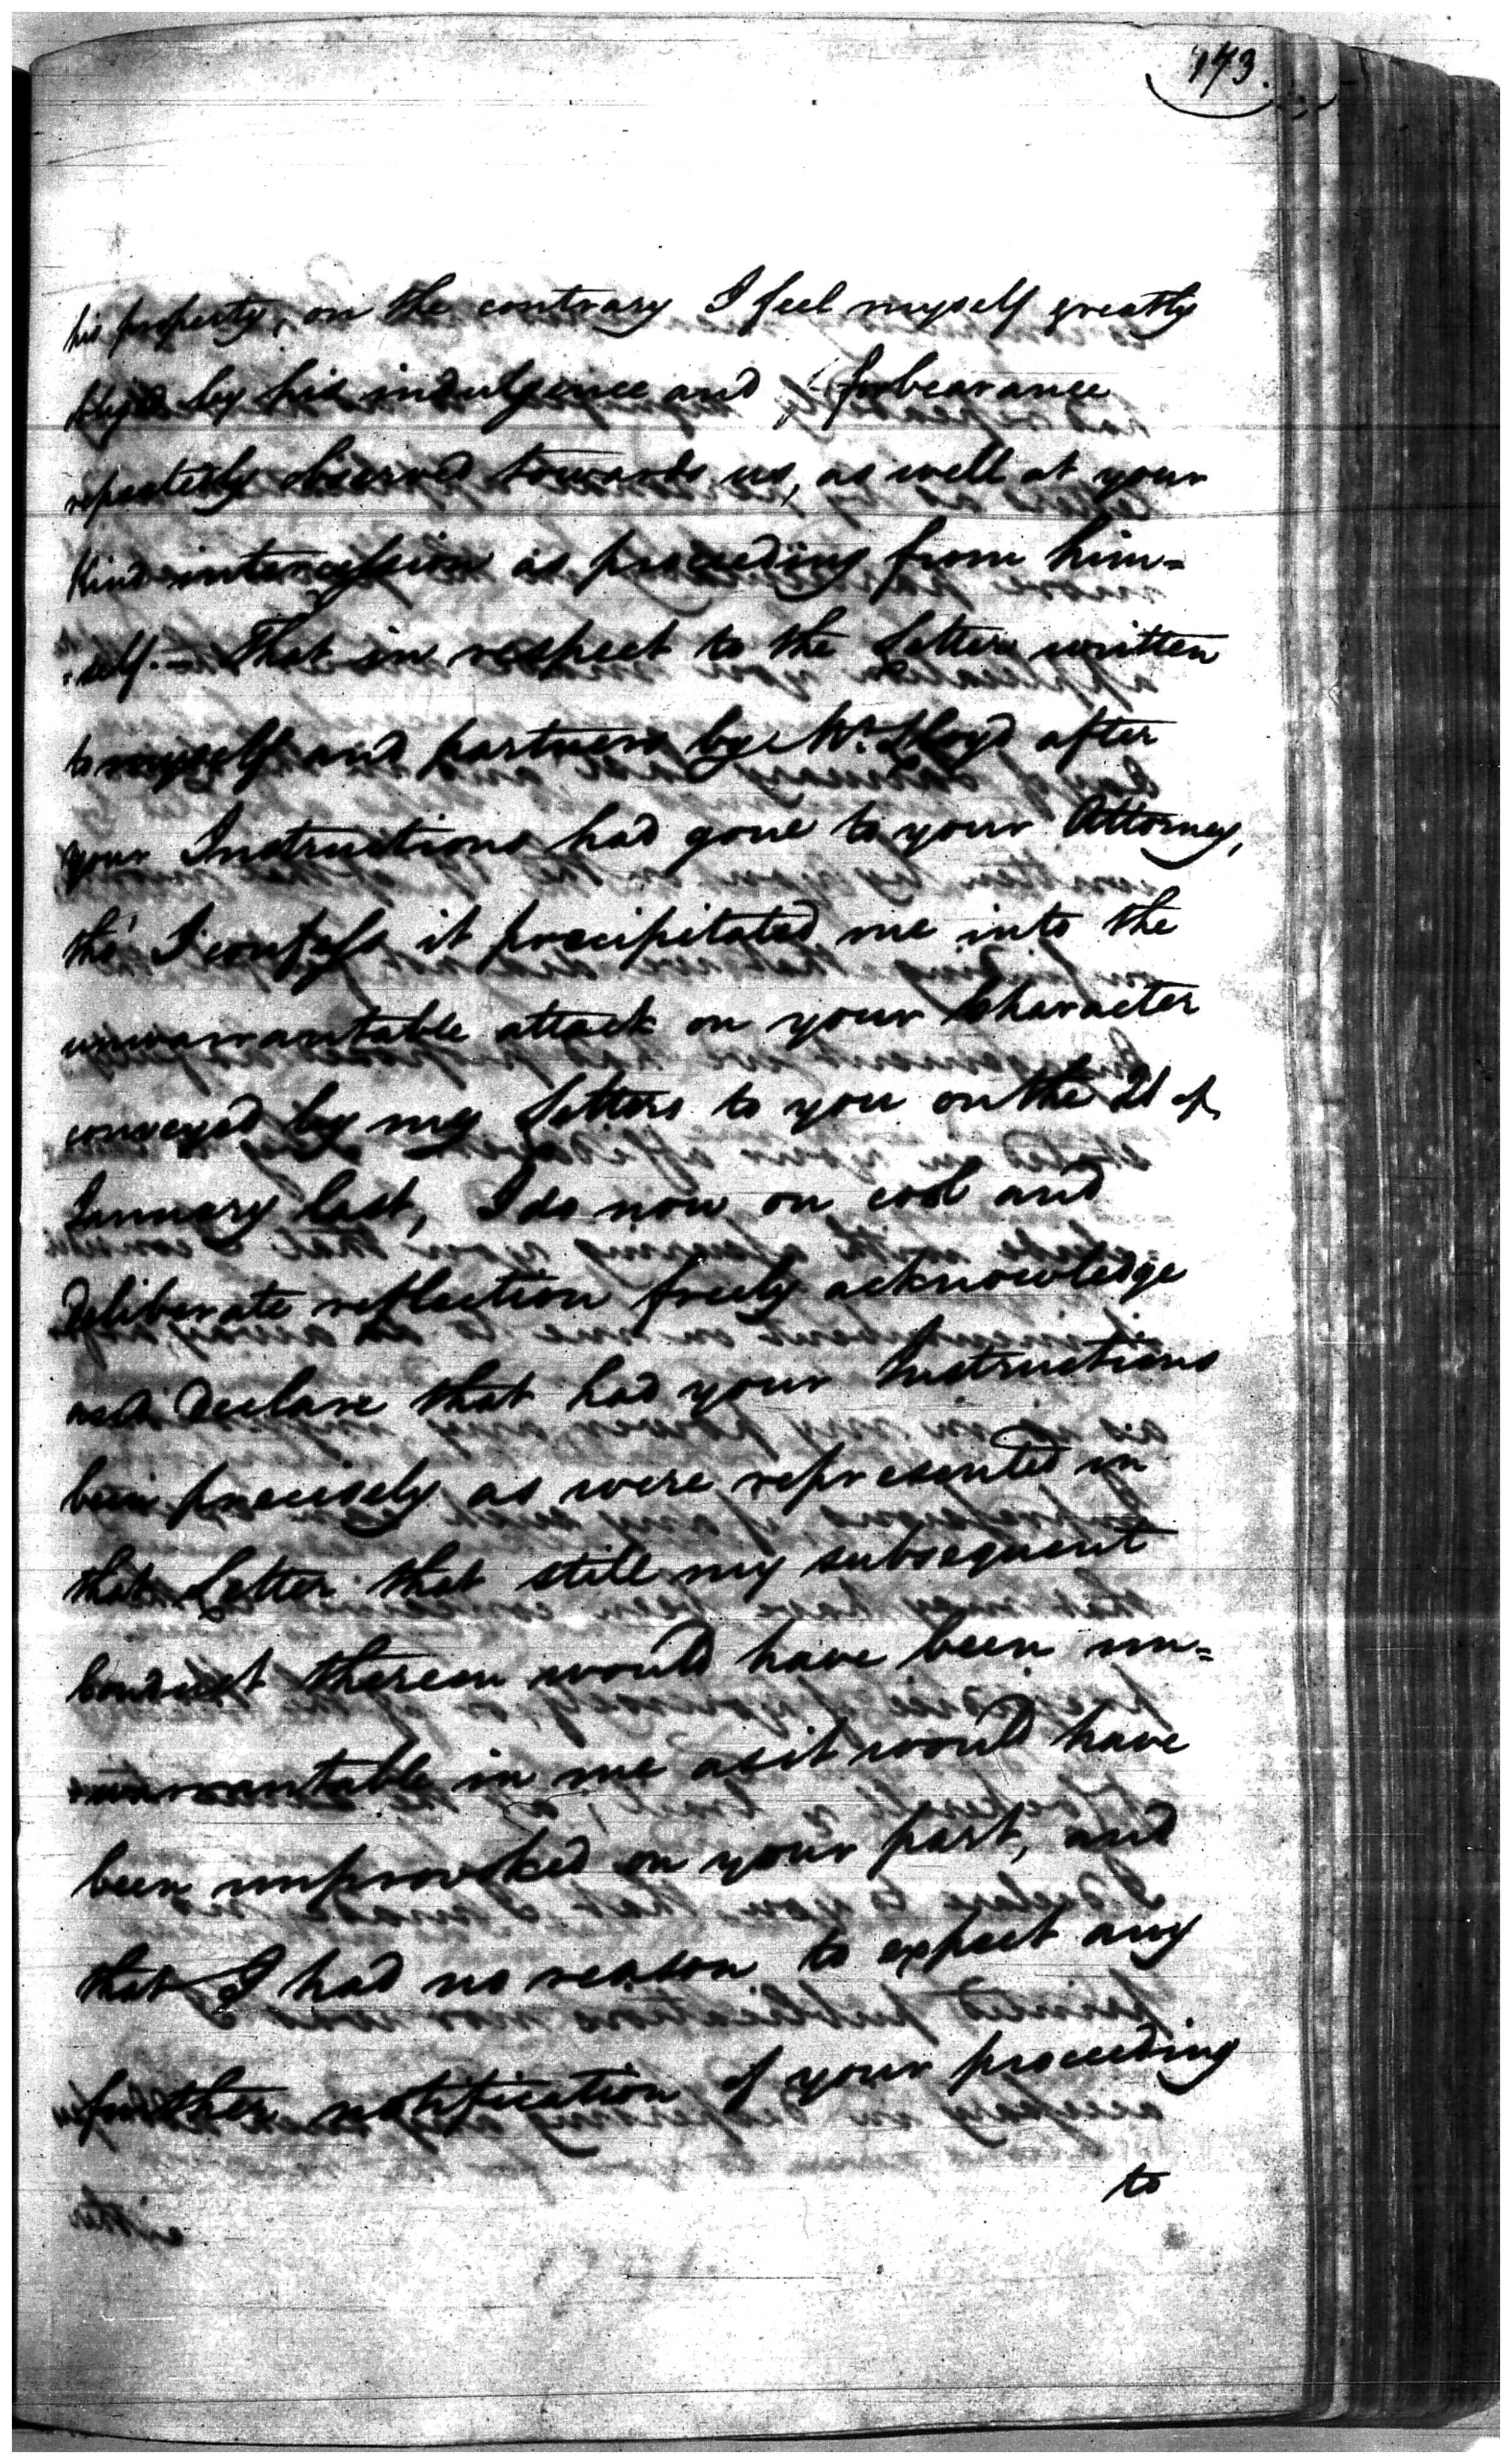 173.
his property, on the contrary I feel myself greatly
obliged by his indulgence and forbearance
repeatedly observed towards us, as well at your
Kind intercession as proceeding from him=
=self. - That in respect to the Letter written
to myself and partners by Mr. Lloyd after
your Instructions had gone to your Attorney,
tho' I confess it precipitated me into the
unwarrantable attack on your Character
conveyed by my Letters to you on the 21 of
January last, I do now on cool and
deliberate reflection freely acknowledge
and declare that had your Instructions
been precisely as were represented in
that Letter that still my subsequent
Conduct thereon would have been un=
=warrantable in me as it would have
been unprovoked on your part, and
that I had no reason to expect any
further notification of your proceeding
to